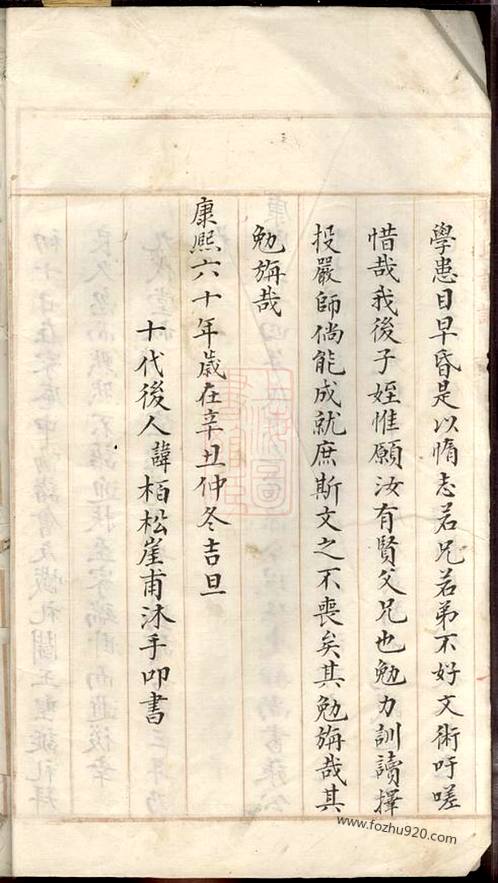 學患目早昏是以惰志若兄若弟不好文術吁嗟
惜哉我後子姪惟願汝有賢父兄也勉力訓讀擇
投嚴師倘能成就庶斯文之不喪矣其勉旃哉其
勉旃哉
康熙六十年歲在辛丑仲冬吉旦
十代後人諱栢松崖甫沐手叩書
www.fozhu920.com